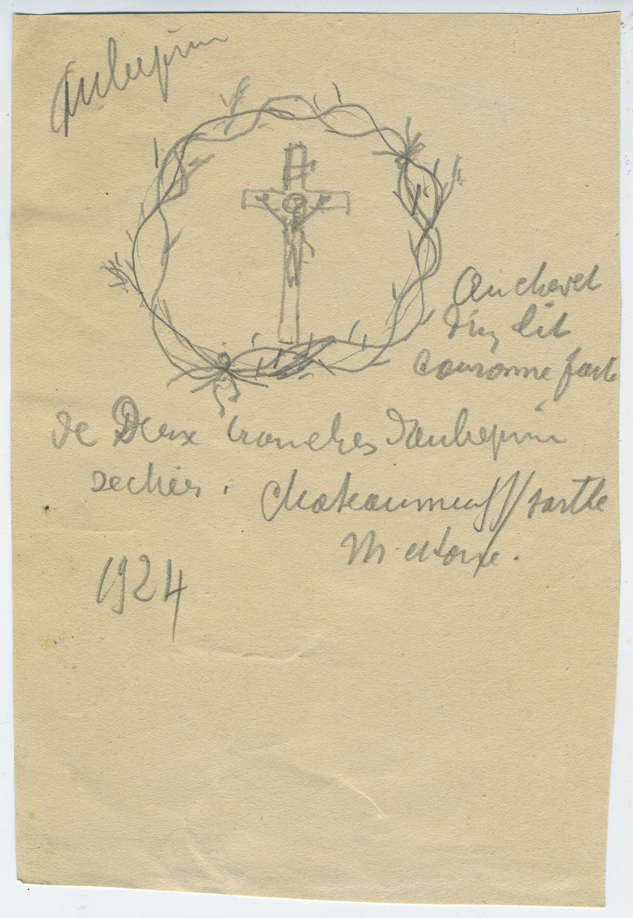 Aubepin
Au chevet
d'un lit
couronne faite
de Deux branches d'aubepin
sechées. Chateauneuf/sarthe
M. et Loire.
1924